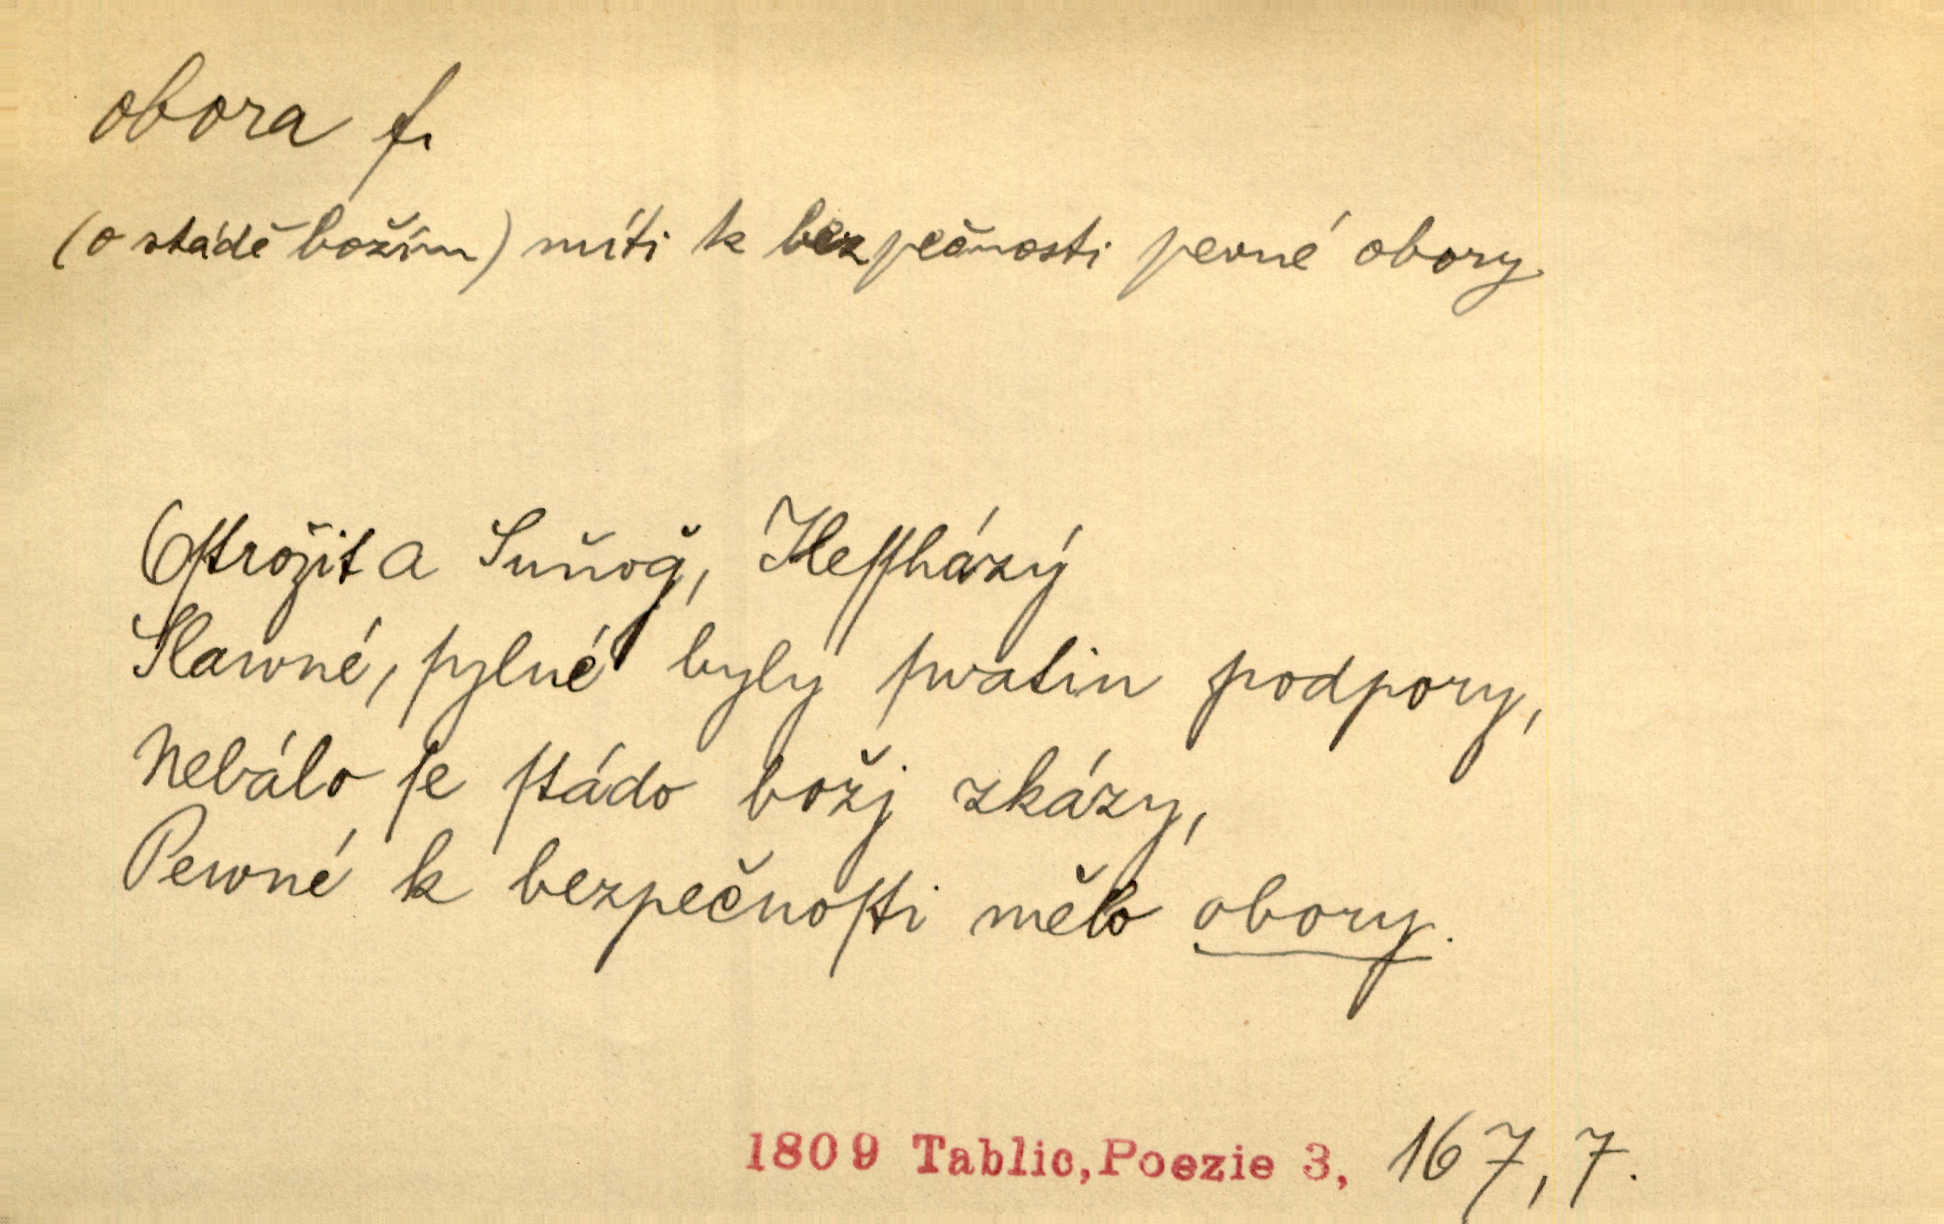 obora f.
(o stádě božím) míti k bezpečnosti pevné obory.
Oſtrožit a Suňog̓, Heſſházý
Slawné, ſylné byly ſwatin podpory,
Nebálo ſe ſtádo božj zkázy,
Pewné k bezpečnoſti mělo obory.
1809 Tablic, Poezie 3, 167, 7.